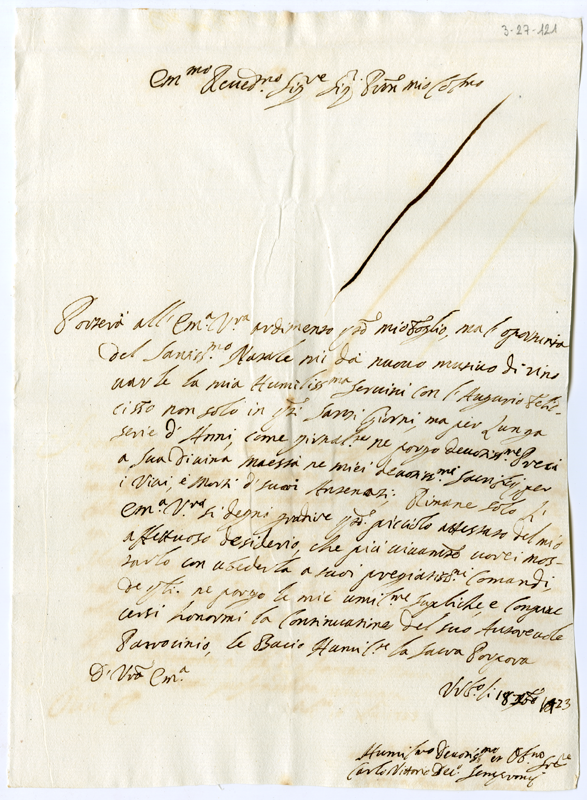 3-27-121
Em.mo Reued.mo Sig.re Sig. Pron mio Col.mo
Porterà all' Em.a V.ra ardimento q.to mio foglio, ma l'oportunità
del Santiss.mo Natale mi dà nuouo motiuo di rino
uarle la mia Humiliss.ma seruitù con l'Augurio felicis
cisso non solo in q.ti Santi Giorni, ma per Lunga
serie d'Anni, come giornal.te ne porgo deuotiss.me Preci
a Sua Diuina maestà ne miei deuotiss.mi Sacrifitij per
i Viui, e Morti d'suoi Antenati; Rimane solo
Em.a V.ra si degni gradire q.to picciolo attestato del mio
affettuoso desiderio, che più uiuam.te uorei mos-
trarlo con ubedirla a suoi pregiatiss.mi Comandi,
de q.li ne porgo le mie umil.me supliche e Compiac
cersi honormi la Continuatione del suo Autoreuole
Patrocinio, le Bacio Humil.te la sacra Porpora
D' Vra Em.a
li 18 1723
Humiliss.mo Deuotiss.mo et Ob.mo Ser.re
Carlo Vittorio